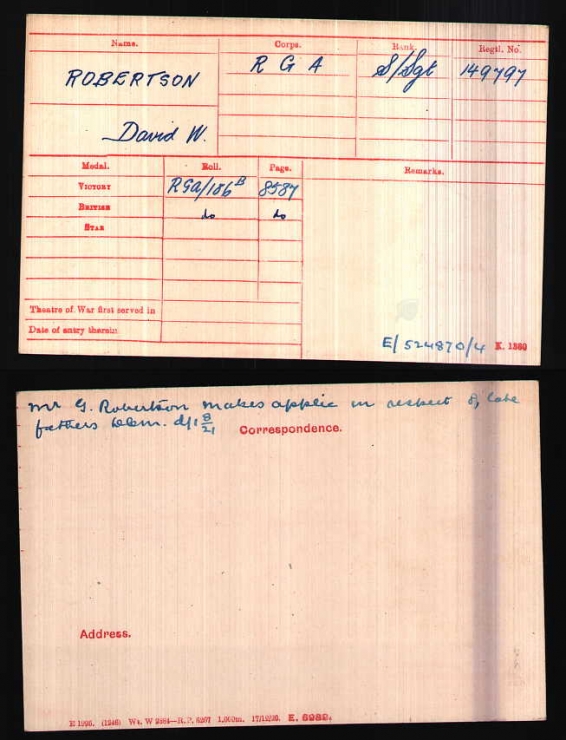 Name. Corps. Rank. Regtl. No.
ROBERTSON R G A S/Sgt 149797
David W.
Medal. Roll. Page. Remarks.
VICTORY RGA/186B 8587
BRITISH do do
STAR
Theatre of War first served in
Date of entry therein
E/524870/4 K. 1380
Mr G. Robertson makes applic in respect of late
fathers d/1 8/21
Correspondence.
Address.
E 1996. (1946) Wt. W 2484—R.P. 8207 1,000m. E. 6989.